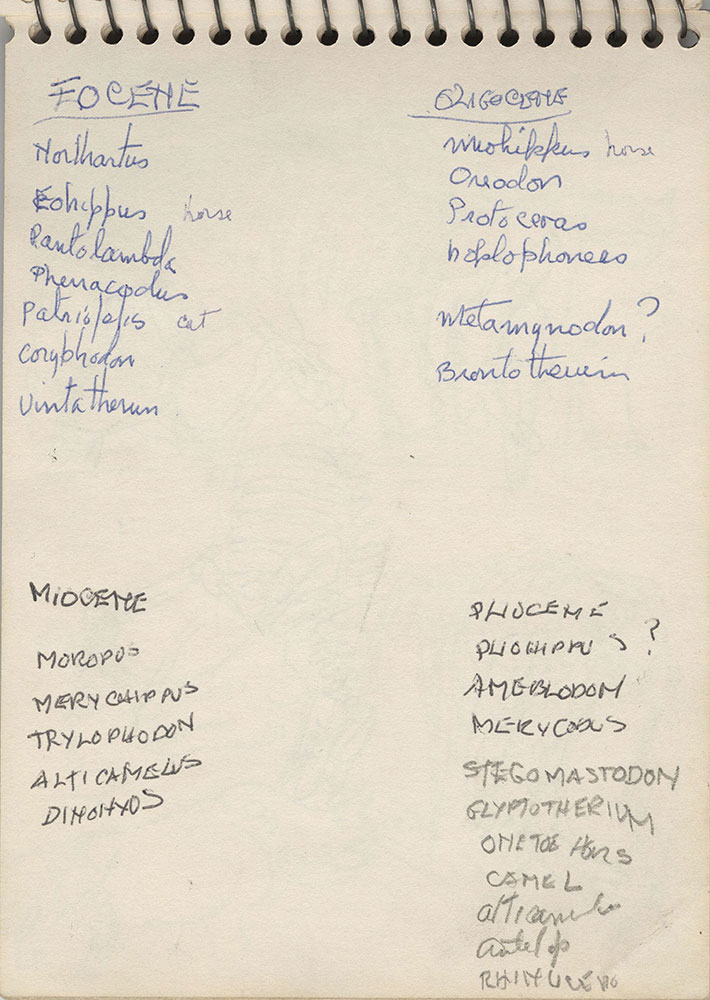 EOCENE
Northartus
Eohippus horse
Pantolambda
Phenacodus
Patriofelis cat
Coryphodon
Uintatherun
OLIGOCENE
miohippus horse
Oreodon
Protoceras
hoplophoneus
Metamynodon ?
Brontotherium
MIOCENE
MOROPUS
MERYCHIPPUS
TRYLOPHODON
ALTICAMELUS
DINOHYUS
PLIOCENE
PLIOHIPPUS ?
AMEBLODON
MERYCODUS
STEGOMASTODON
GLYPTOTHERIUM
ONE TOE HORS
CAMEL
alticamelus
antelop